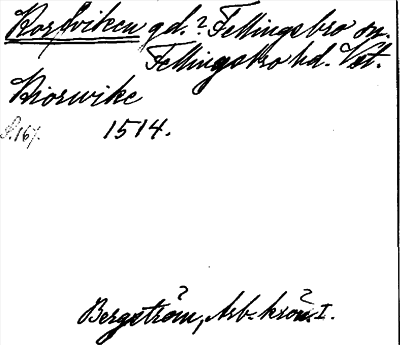 Korsviken gd.? Fellingsbro sn.
Fellingsbro hd. Vst.
Kiorwike
S. 167. 1514.
Bergström, Arb.krön. I.